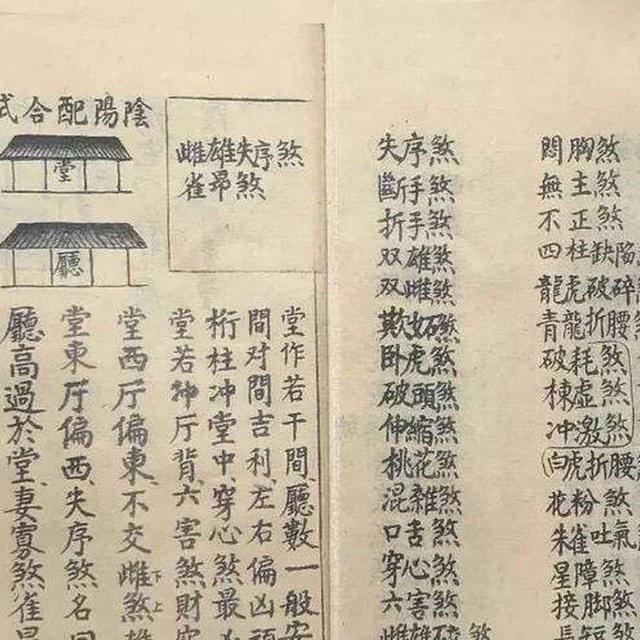 陰陽配合式
堂
廳
雌雄失序煞
雀昂煞
堂作若干間、廳數一般安
間对間吉利、左右偏凶頭
桁柱冲堂中、穿心煞最凶
堂若神厅背、六害煞財空
堂西厅偏東、不交雌煞雄
下上
堂東厅偏西、失序煞名同
廳高過於堂、妻寡煞雀昂
失序煞
斷手煞
折手煞
双雄煞
双雌煞
欺奴煞
卧虎煞
破頭煞
伸縮煞
桃花煞
混雜煞
口舌煞
穿心煞
六害煞
雌雄破煞
悶胸煞
無主煞
不正煞
四柱缺陷
龍虎破碎
青龍折腰
破耗煞
棟虛煞
冲激煞
白虎折腰
花粉煞
朱雀吐氣
星障煞
接脚煞
長短煞